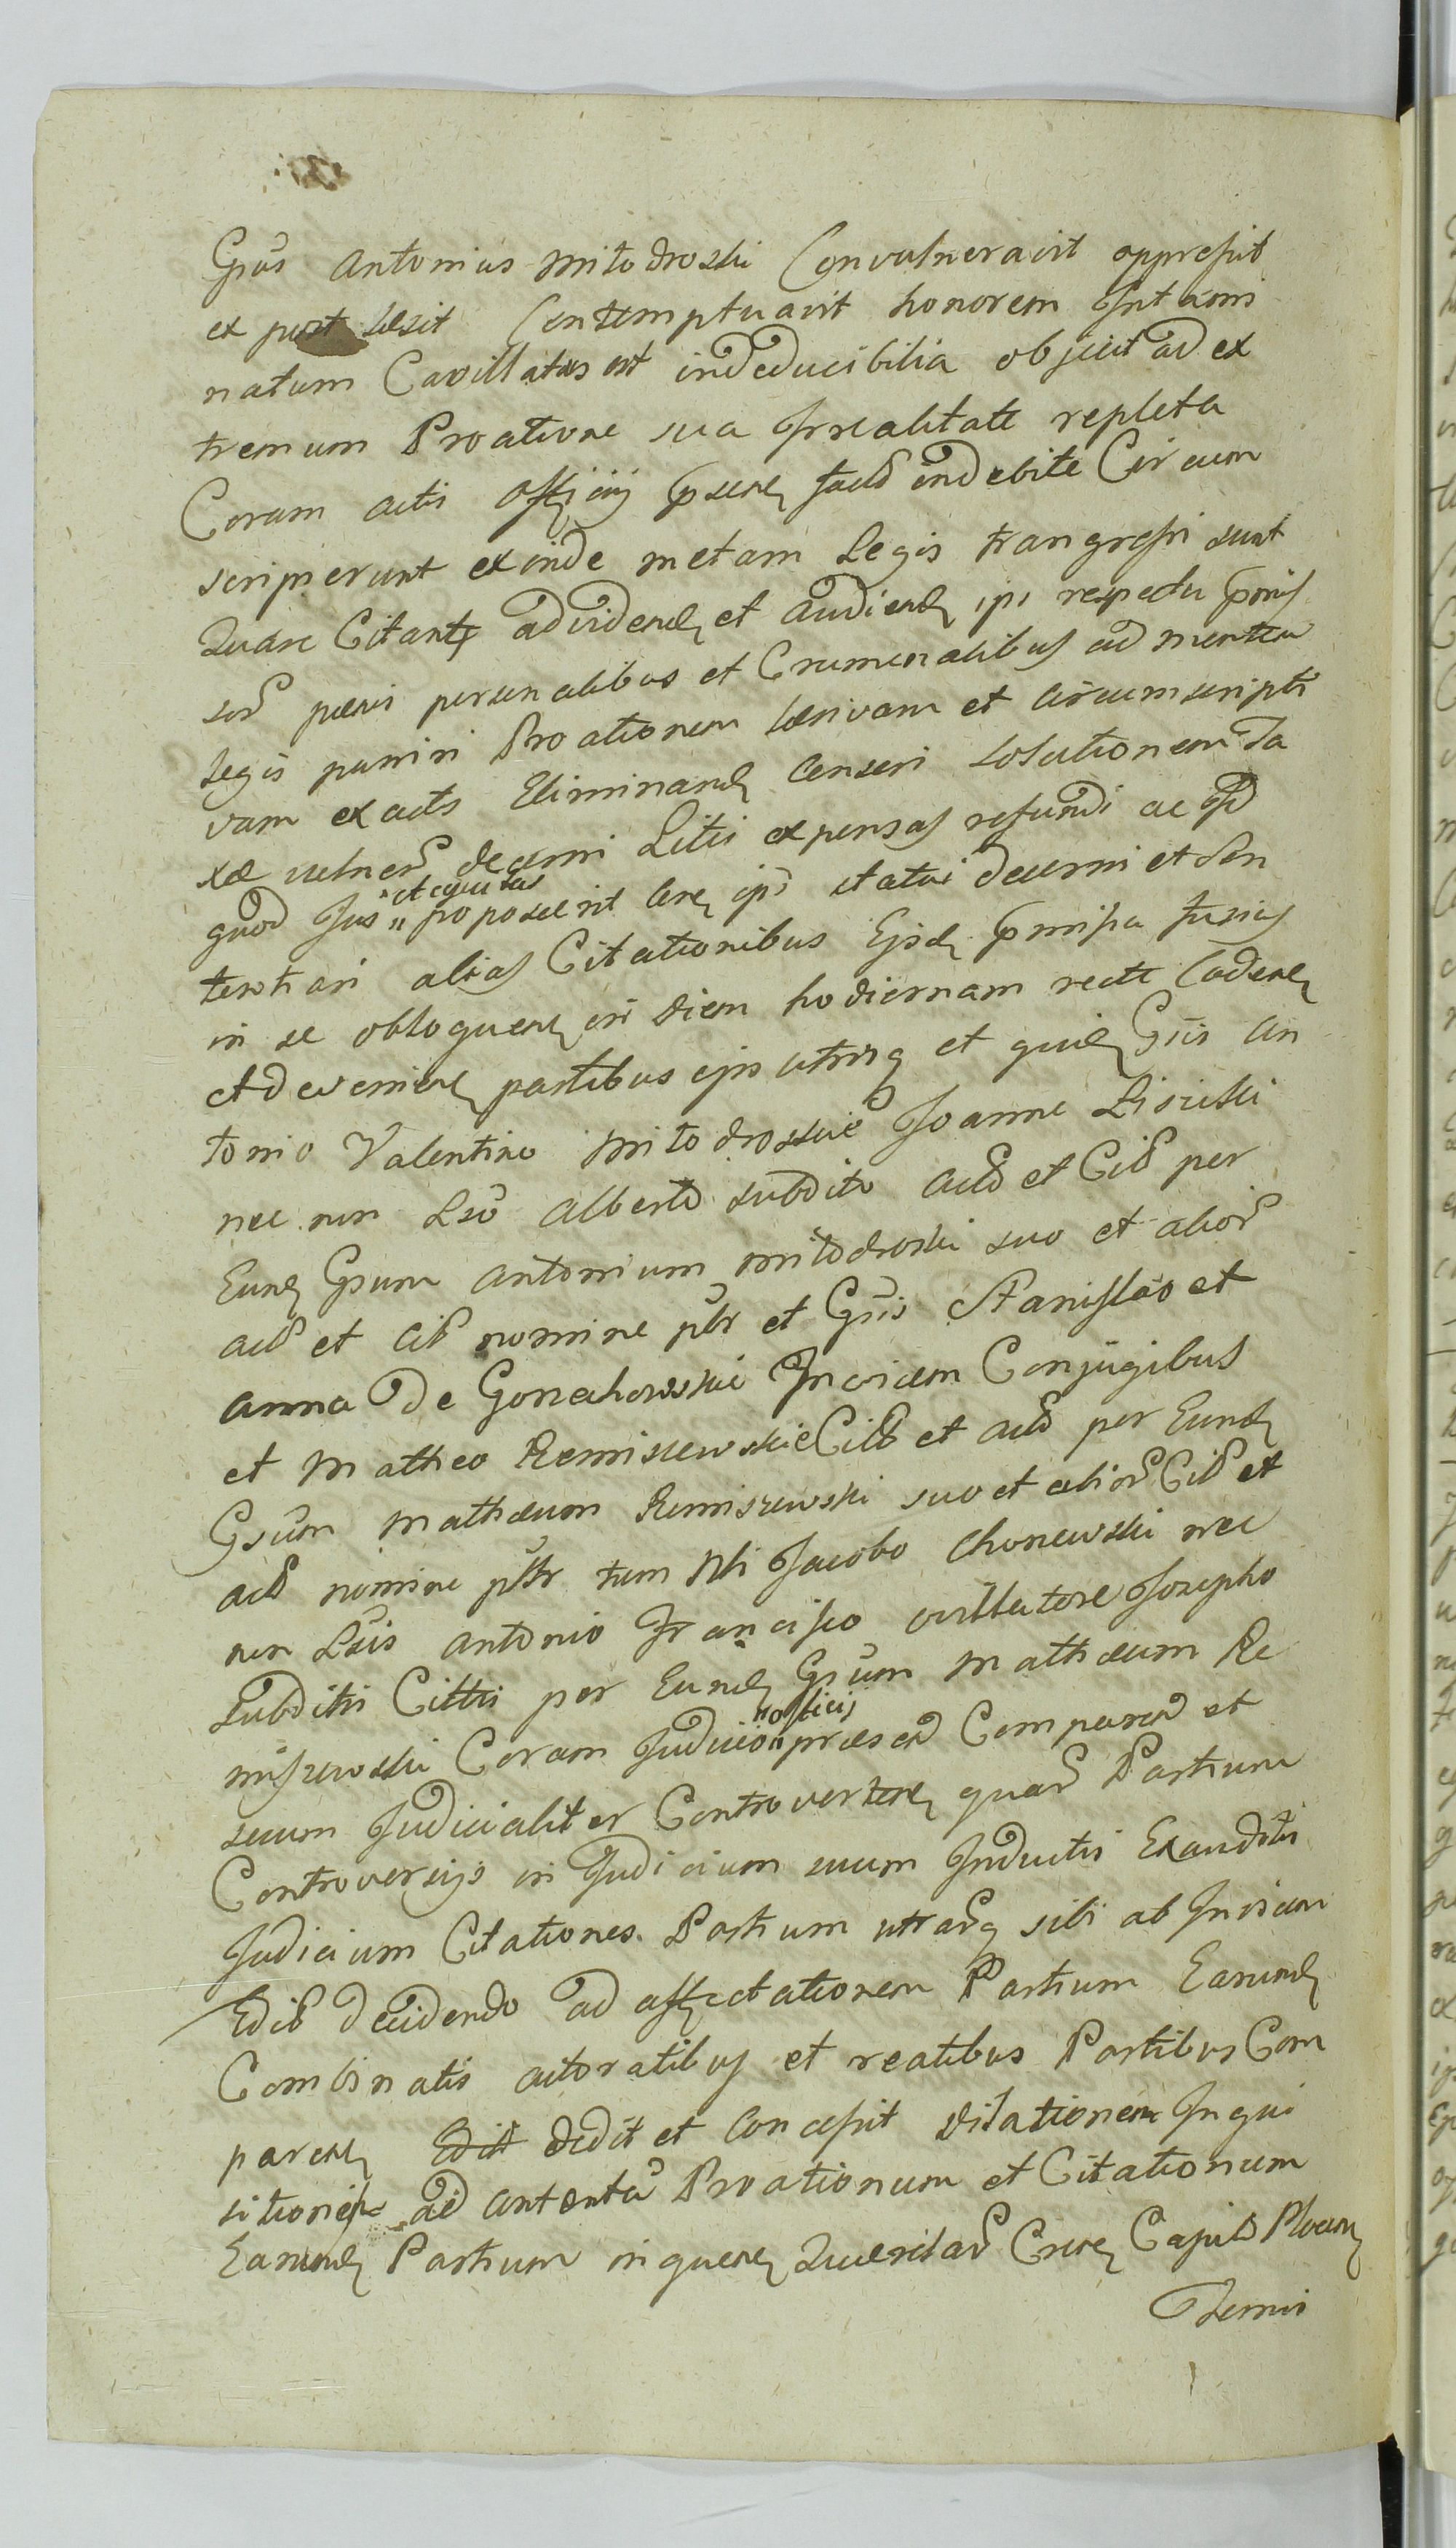 Gsūs Antonius Mitodroski Convulneravit oppressit
ex post læsit Contemptuavit honorem Intami
natum Cavillatus est indeducibilia objecit ad ex
tremum Proatione sua Irrealitate repleta
Coram actis Offcij psen facta indebite Circum
scripserunt ex inde metam Legis trangressi sunt
Quare Citant ad vidend et audiend ipi respectu pmis
sor pænis personalibus et Crumenalibus ad mentem
Legis puniri Proationem læsivam et circumscripti
vam ex actis Eliminand Censeri solutionem Ta
xæ vulner decerni Litis expensas refundi ac id
quod Jus "et equitas" poposcerit Cen ipi statui decerni et Sen
tentiari alias Citationibus Ejsd pmissa fusius
in se obloquen in diem hodiernam recte Caden
et devenien partibus ejs utrisq et quid Gsis An
tonio Valentino Mitodroskie Joanne Lisicki
nec non Lso Alberto subdito Actō et Citō per
Eund Gsum Antonium Mitodroski suo et alior
Act et Cit nomine pŝtr et Gsis Stanislao et
Anna De Gonchowskie Invicem Conjugibus
et Mattheo Remiszewskie Citō et Actō per Eund
Gsum Mathæum Remiszewski suo et alior Cit et
act nomine pŝtr tum Nli Jacobo Chonewski nec
non Lsis Antonio Francisco Josepho
Subditis Cittis per Eund Gsum Mathæum Re
miszewski Coram Judicio "Officij" præsen Comparen et
secum Judicialiter Controverten quar Partium
Controversijs in Judicium suum Inductis Exauditis
Judicium Citationes Partium utrarq sibi ab Invicem
Edit decidendo ad affectationem Partium Earund
Combinatis actoratibus et reatibus Partibus Com
paren Edit dedit et Concessit dilationem Inqui
sitionis ad contenta Proationum et Citationum
Earund Partium in quen Capit
Termis